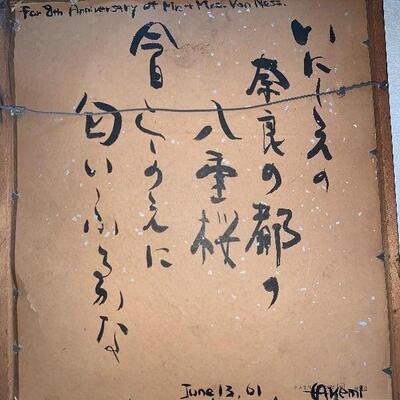 For 8th Anniversary of Mr. + Mrs. Van Ness.
いにしえの
奈良の都の
八重桜
今日こゝのえに
匂いぬるかな
June 13, 61
Akemi